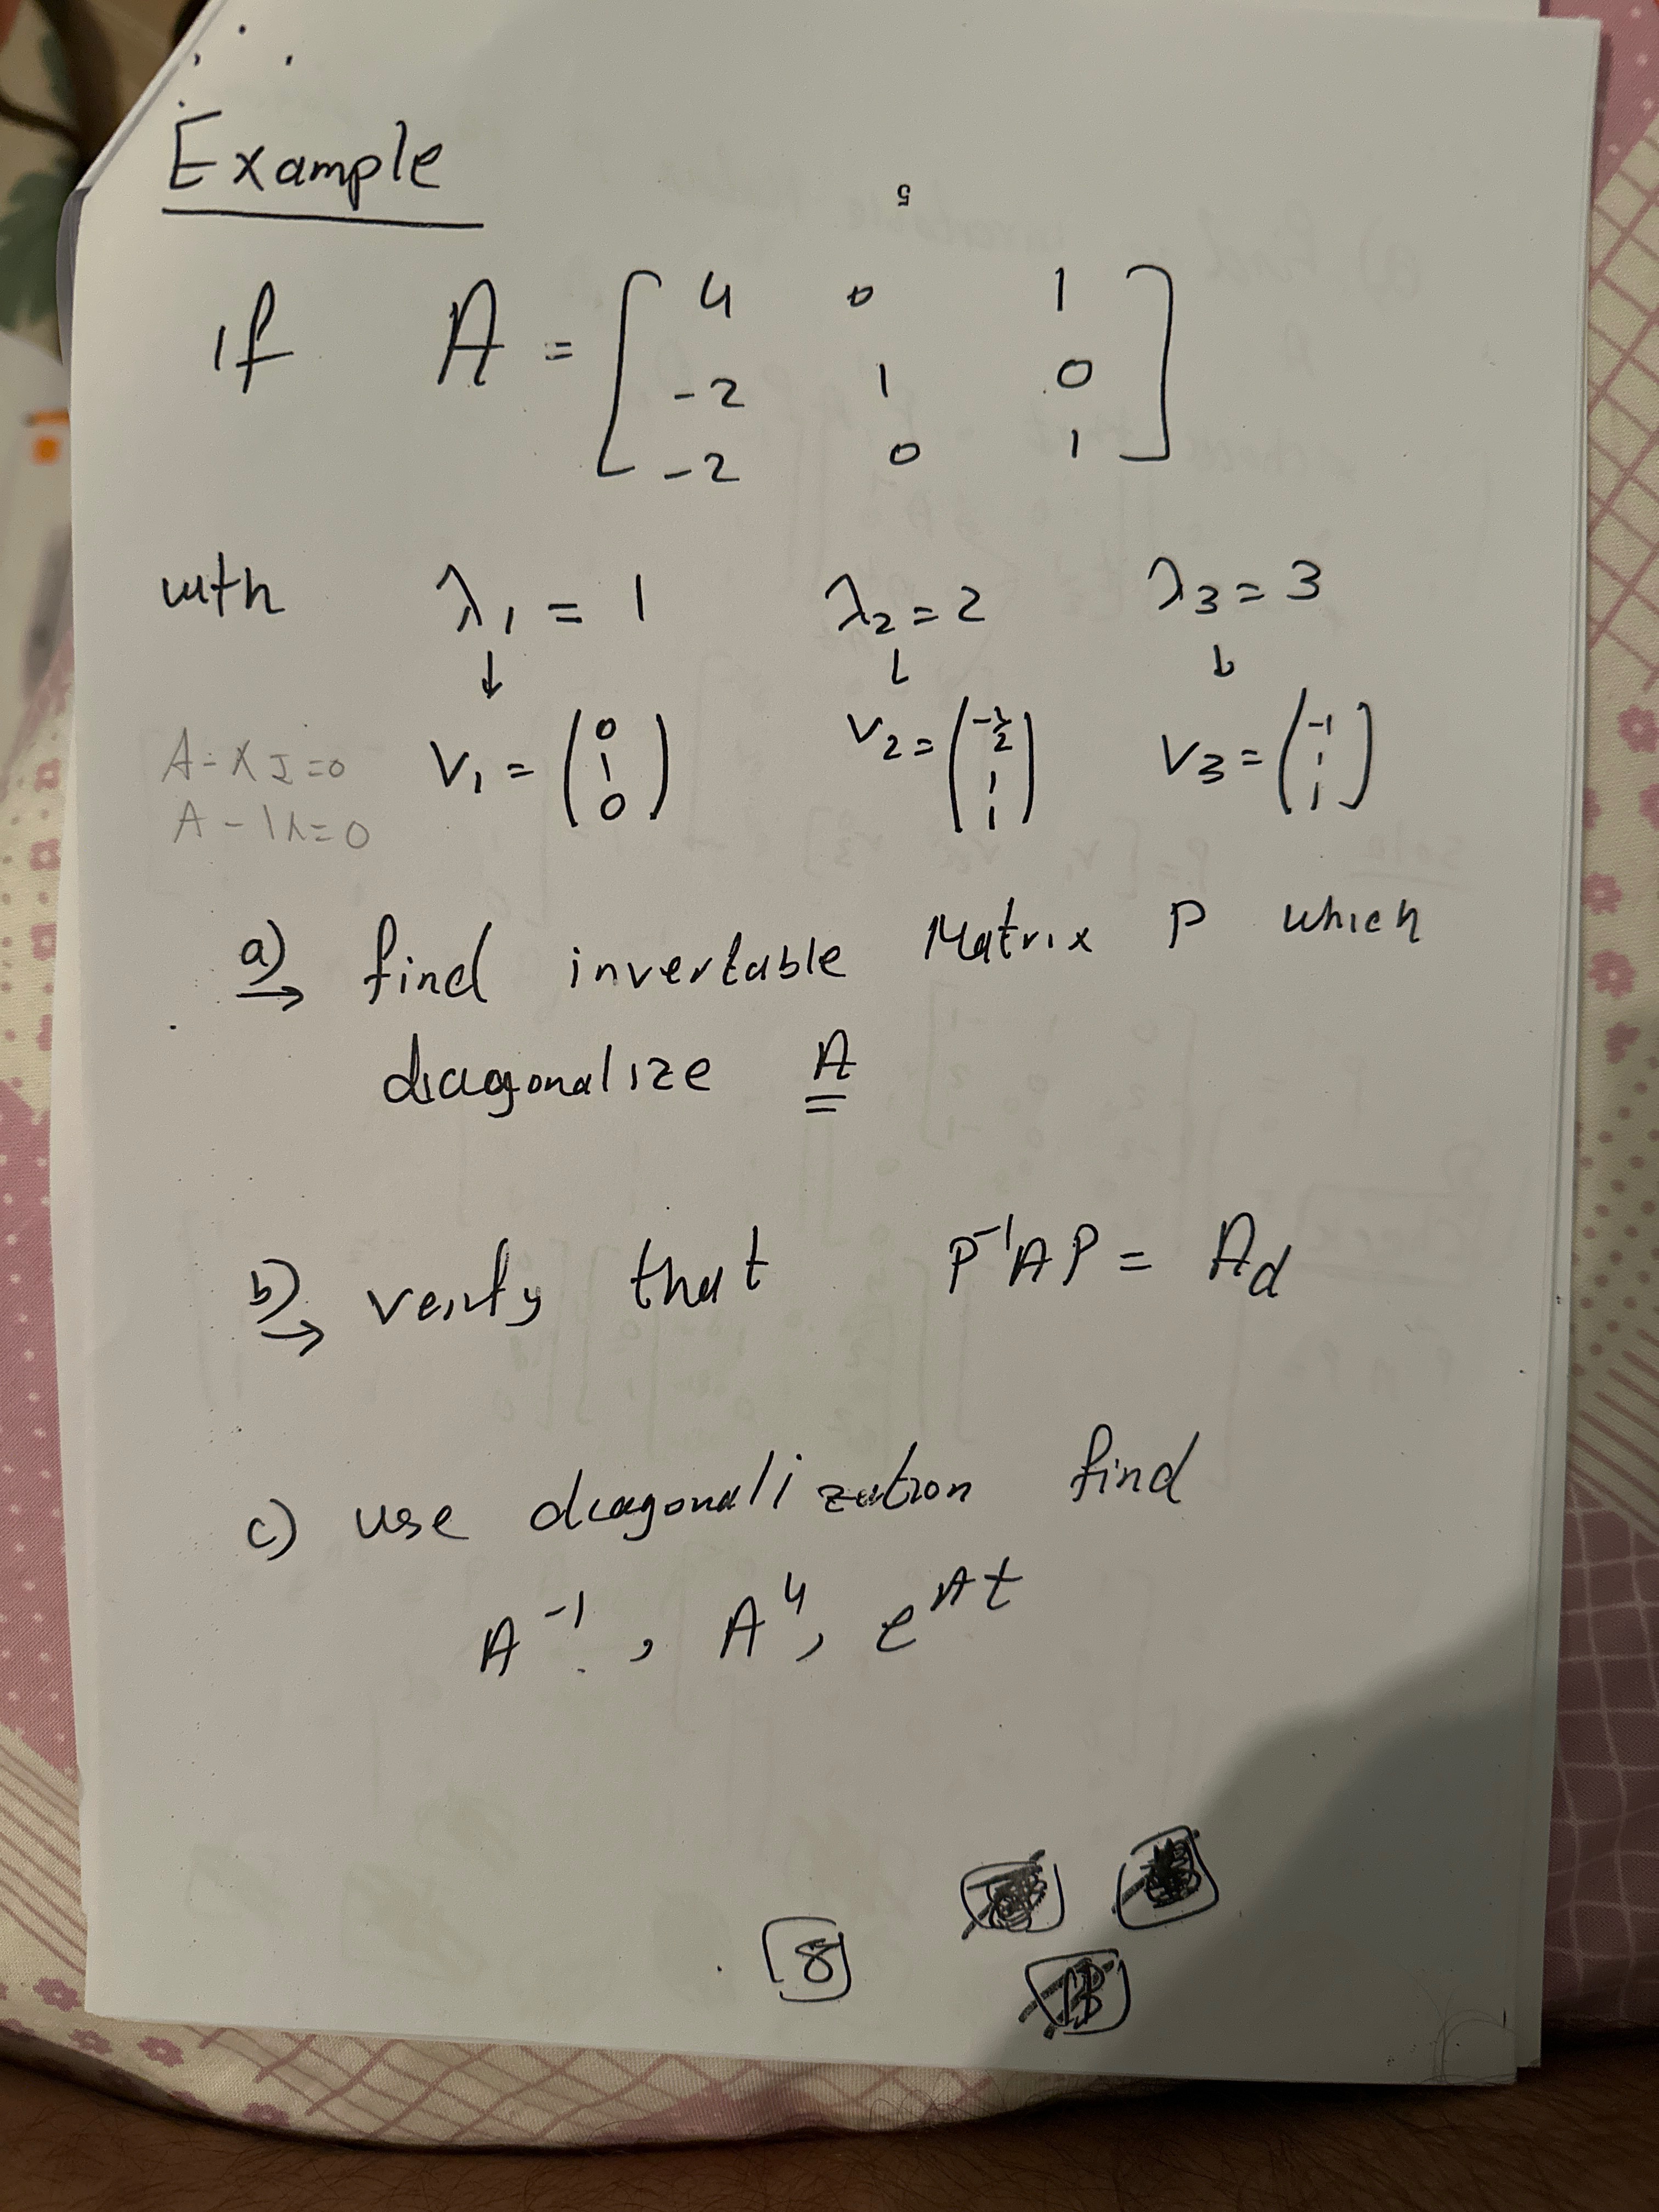 Example
5
If A = [ 4 0 1
-2 1 0
-2 0 1 ]
with λ1 = 1 λ2 = 2 λ3 = 3
↓ ↓ ↓
V1 = (0 1 0) V2 = (-1/2 1 1) V3 = (-1 1 1)
A - X I = 0
A - 1λ = 0
a) → find invertable Matrix P which
diagonalize A
b) → verify that P⁻¹AP = Ad
c) use diagonalization find
A⁻¹, A⁴, e^At
8
13